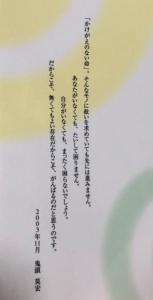 「かけがえのない命」。そんなモノに救いを求めていても先には進みません。
あなたがいなくても、たいして困りません。
自分がいなくても、まったく困らないでしょう。
だからこそ、無くてもよい存在だからこそ、がんばるのだと思うのです。
2003年11月　鬼頭 莫宏